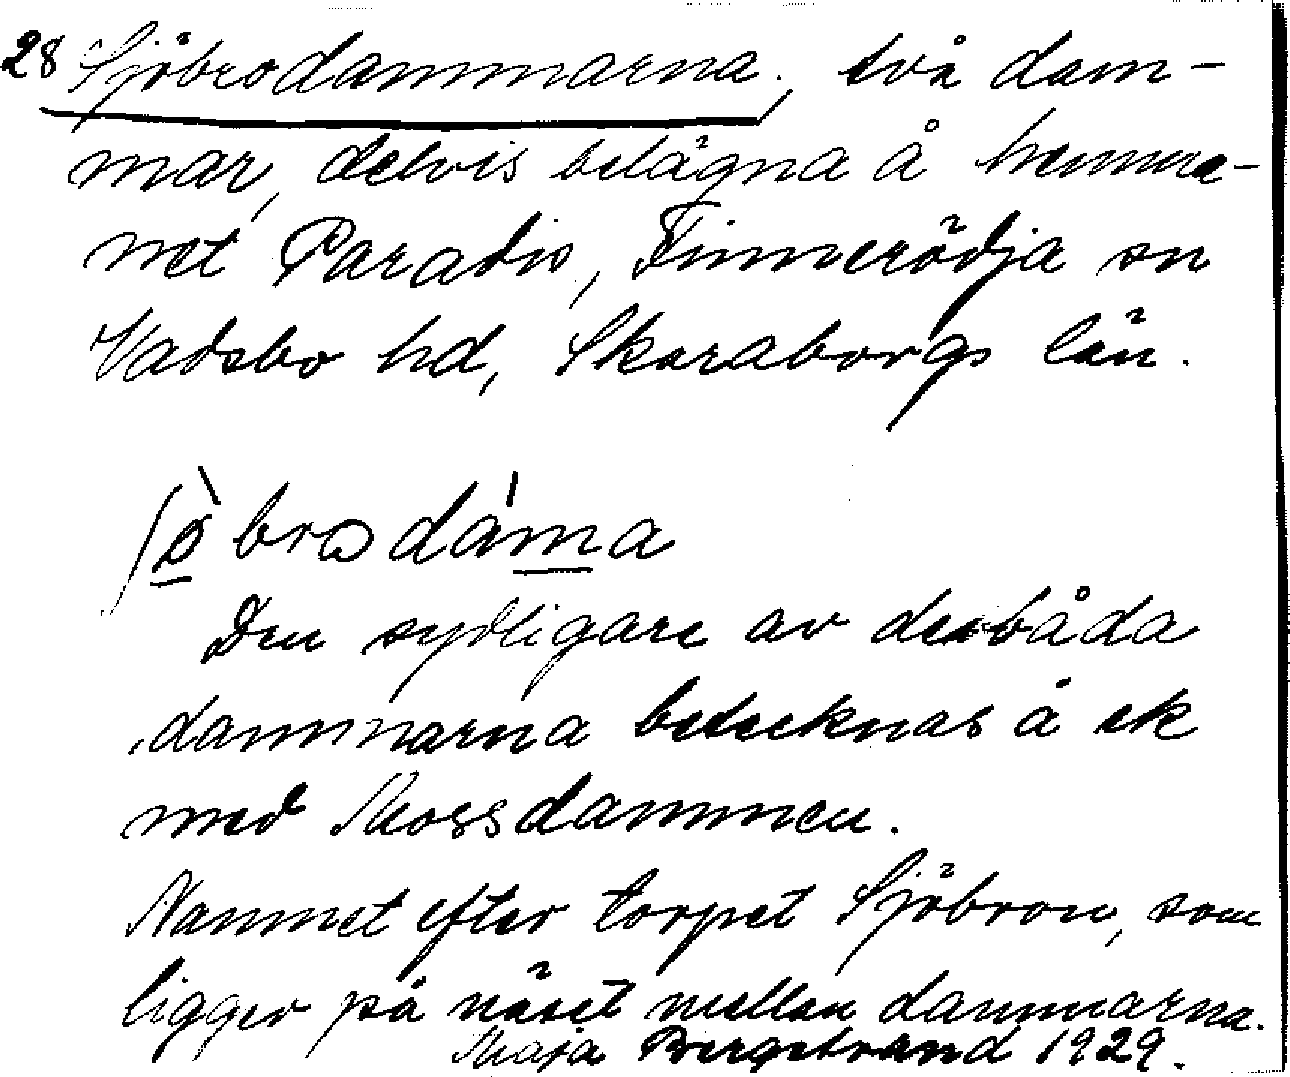 28 Sjöbrodammarna, två dam-
mar, delvis belägna å hemma-
net Paradis, Finnerödja sn
Vadsbo hd, Skaraborgs län.
ʃø̀brodáma
Den sydligare av de båda
dammarna betecknas å ek
med Mossdammen.
Namnet efter torpet Sjöbron, som
ligger på näset mellan dammarna.
Maja Bergstrand 1929.